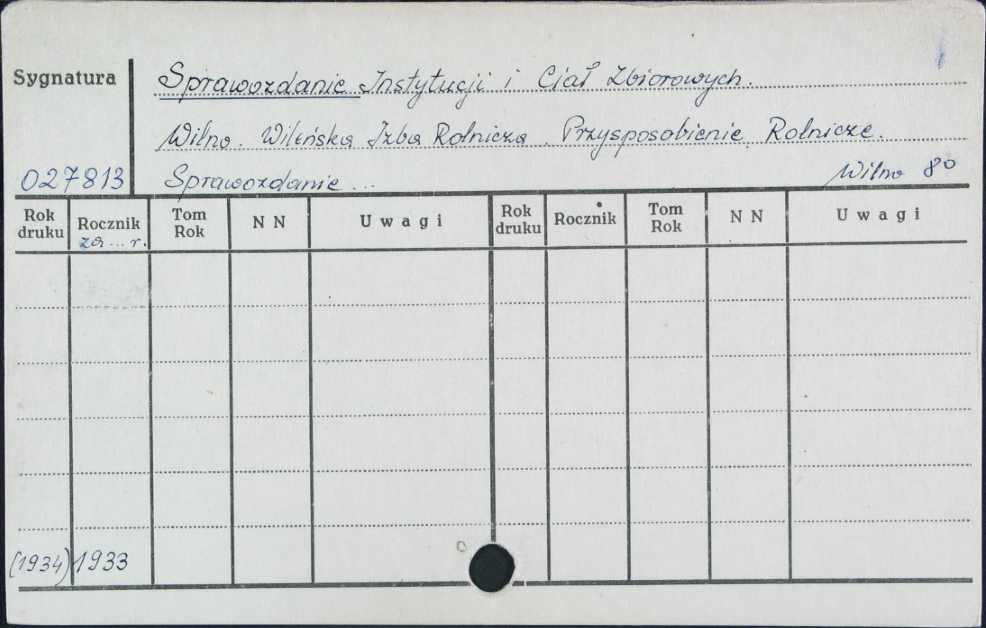 Sygnatura
Sprawozdanie Instytucji i Ciał Zbiorowych.
Wilno. Wileńska Izba Rolnicza. Przysposobienie Rolnicze.
027813 Sprawozdanie... Wilno 8º
Rok druku Rocznik za ... r. Tom Rok N N Uwagi Rok druku Rocznik Tom Rok N N Uwagi
(1934) 1933